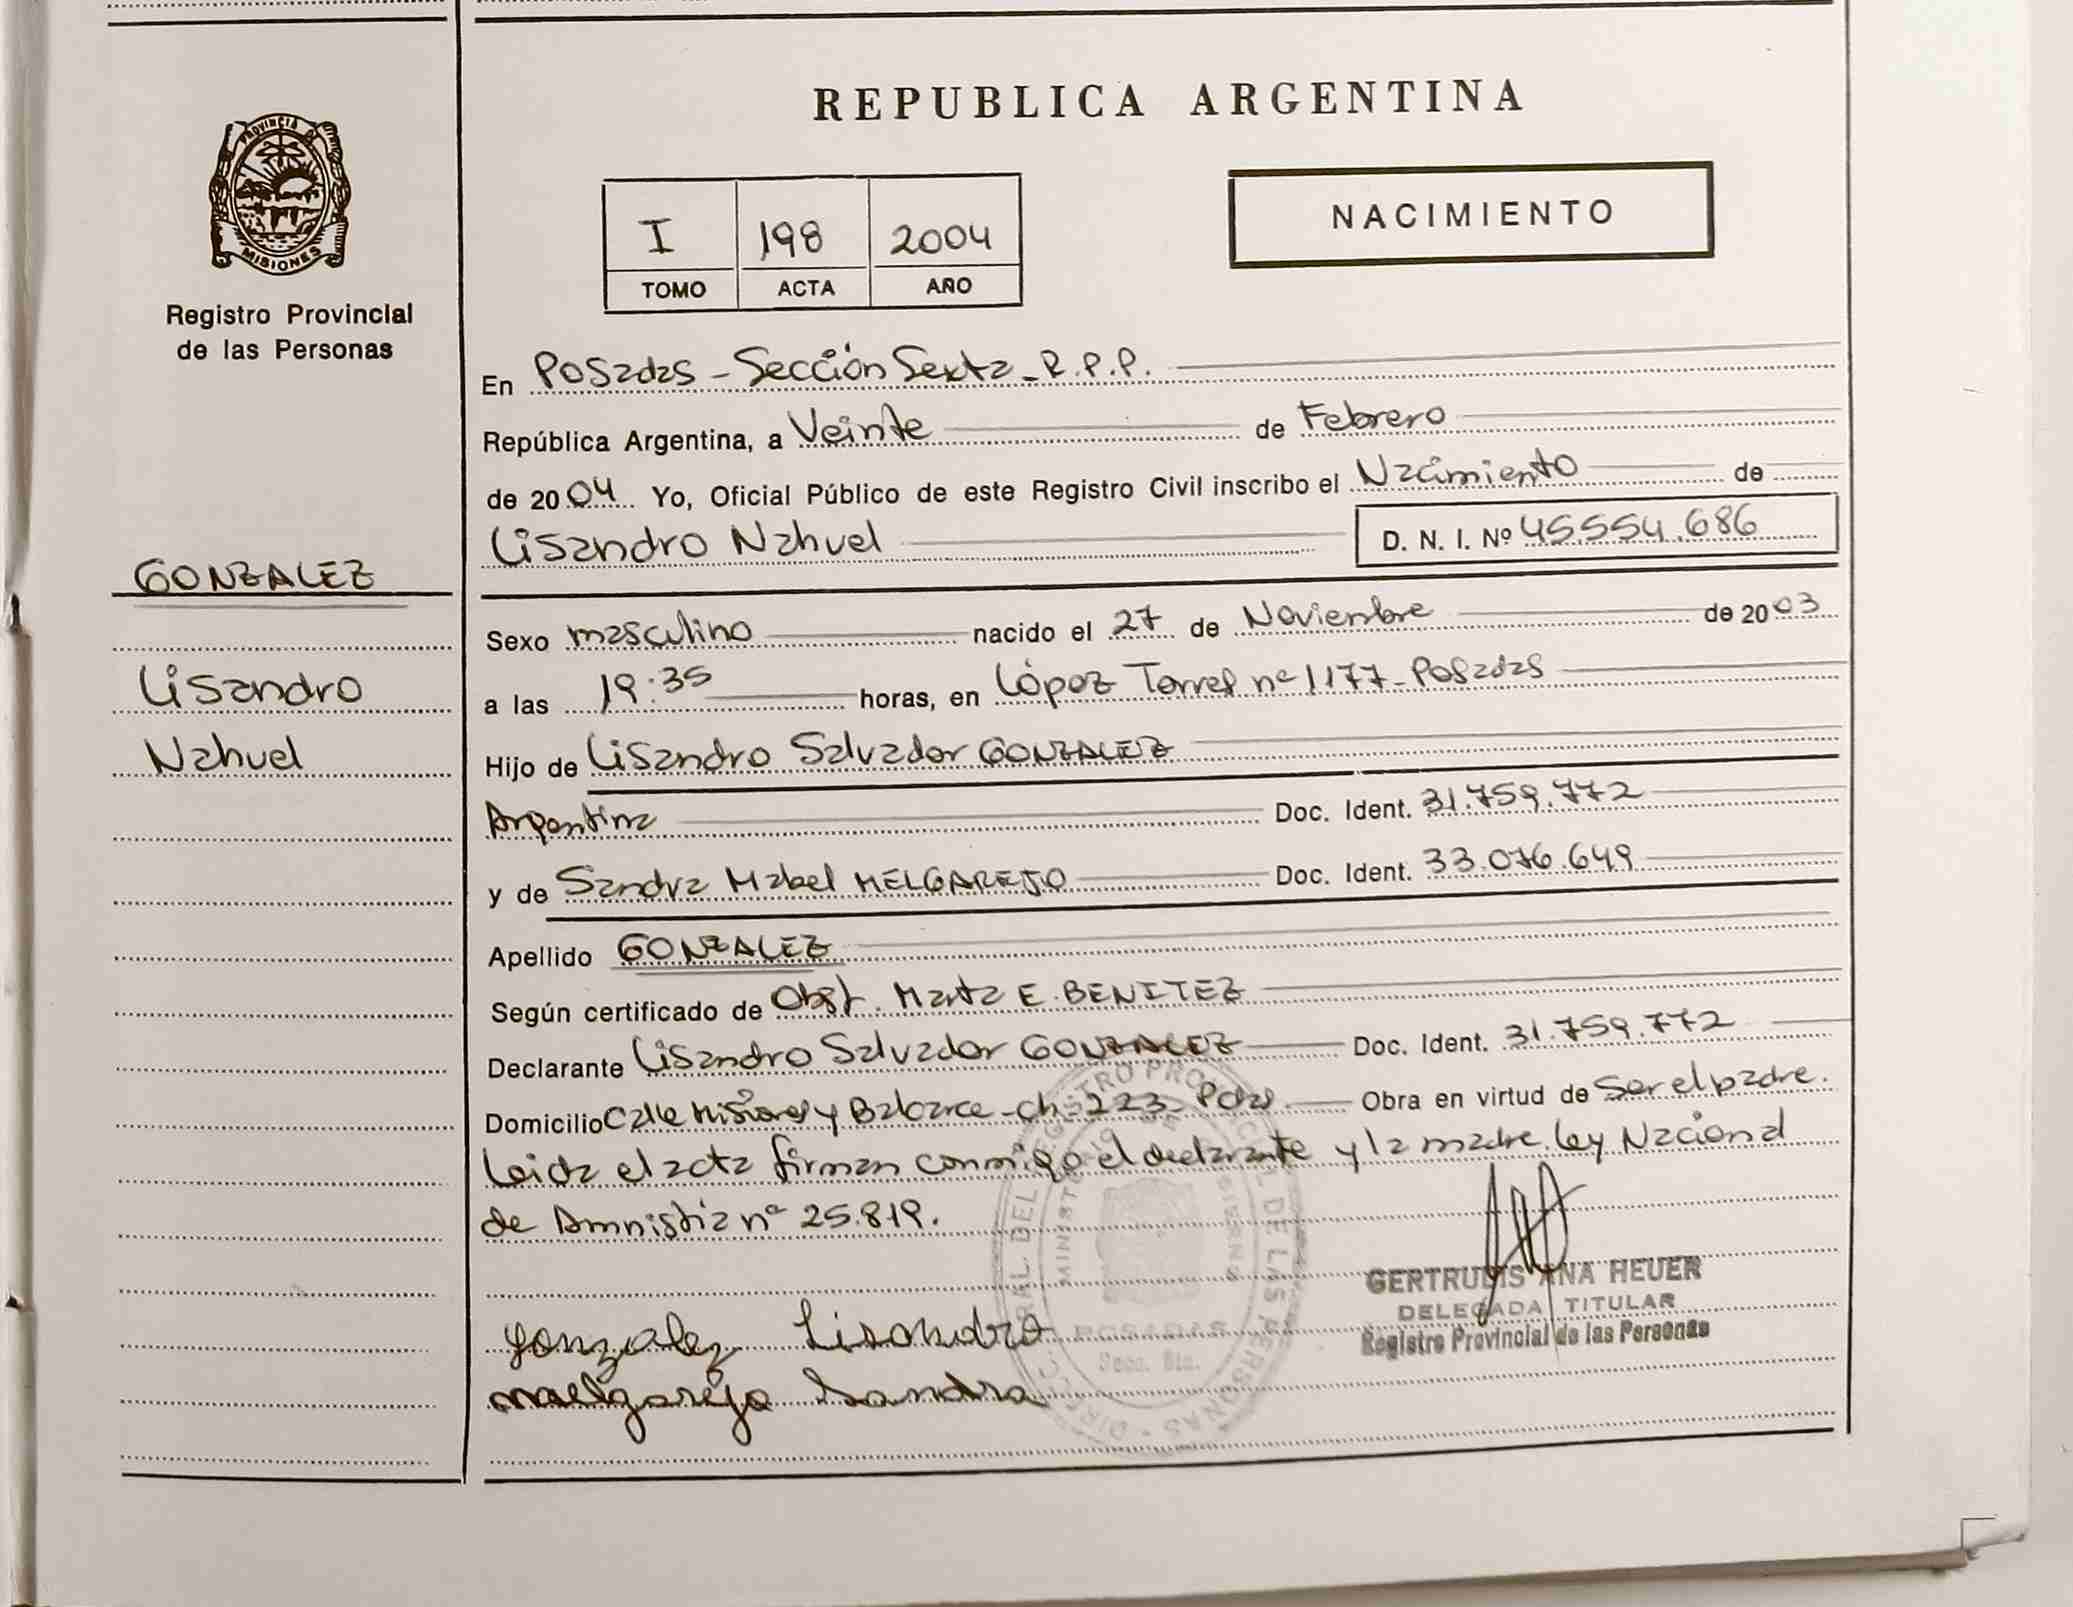 REPUBLICA ARGENTINA
PROVINCIA DE
MISIONES
Registro Provincial
de las Personas
I 198 2004
TOMO ACTA AÑO
NACIMIENTO
En Posadas - Sección Sexta - R.P.P.
República Argentina, a Veinte de Febrero
de 2004 Yo, Oficial Público de este Registro Civil inscribo el Nacimiento de
Lisandro Nahuel D. N. I. Nº 45.554.686
GONZALEZ
Lisandro
Nahuel
Sexo masculino nacido el 27 de Noviembre de 2003
a las 19:35 horas, en López Torres nº 1177 - Posadas
Hijo de Lisandro Salvador GONZALEZ
Argentina Doc. Ident. 31.759.772
y de Sandra Mabel MELGAREJO Doc. Ident. 33.076.649
Apellido GONZALEZ
Según certificado de Obst. Marta E. BENITEZ
Declarante Lisandro Salvador GONZALEZ Doc. Ident. 31.759.772
Domicilio Calle Misiones y Balcarce - ch: 223 - Pdas. Obra en virtud de Ser el padre.
Leida el acta firman conmigo el declarante y la madre. Ley Nacional
de Amnistia nº 25.819.
GERTRUDIS ANA HEUER
DELEGADA TITULAR
Registro Provincial de las Personas
gonzalez Lisandro
maelgarejo Sandra
DEL REGISTRO PROVINCIAL DE LAS PERSONAS
POSADAS
Secc. 6ta.